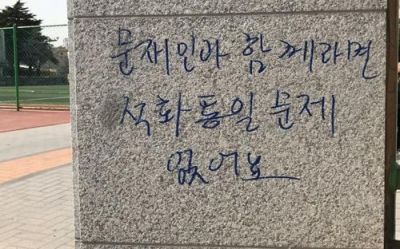 문재인과 함께라면
적화통일 문제
없어요